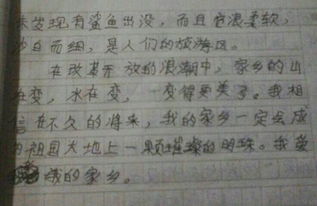 未发现有鲨鱼出没，而且海浪柔软，
沙白而细，是人们的旅游区。
在改革开放的浪潮中，家乡的山
在变，水在变，变得更美了。我相
信在不久的将来，我的家乡一定会成
为祖国大地上一颗璀璨的明珠。我爱
我的家乡。